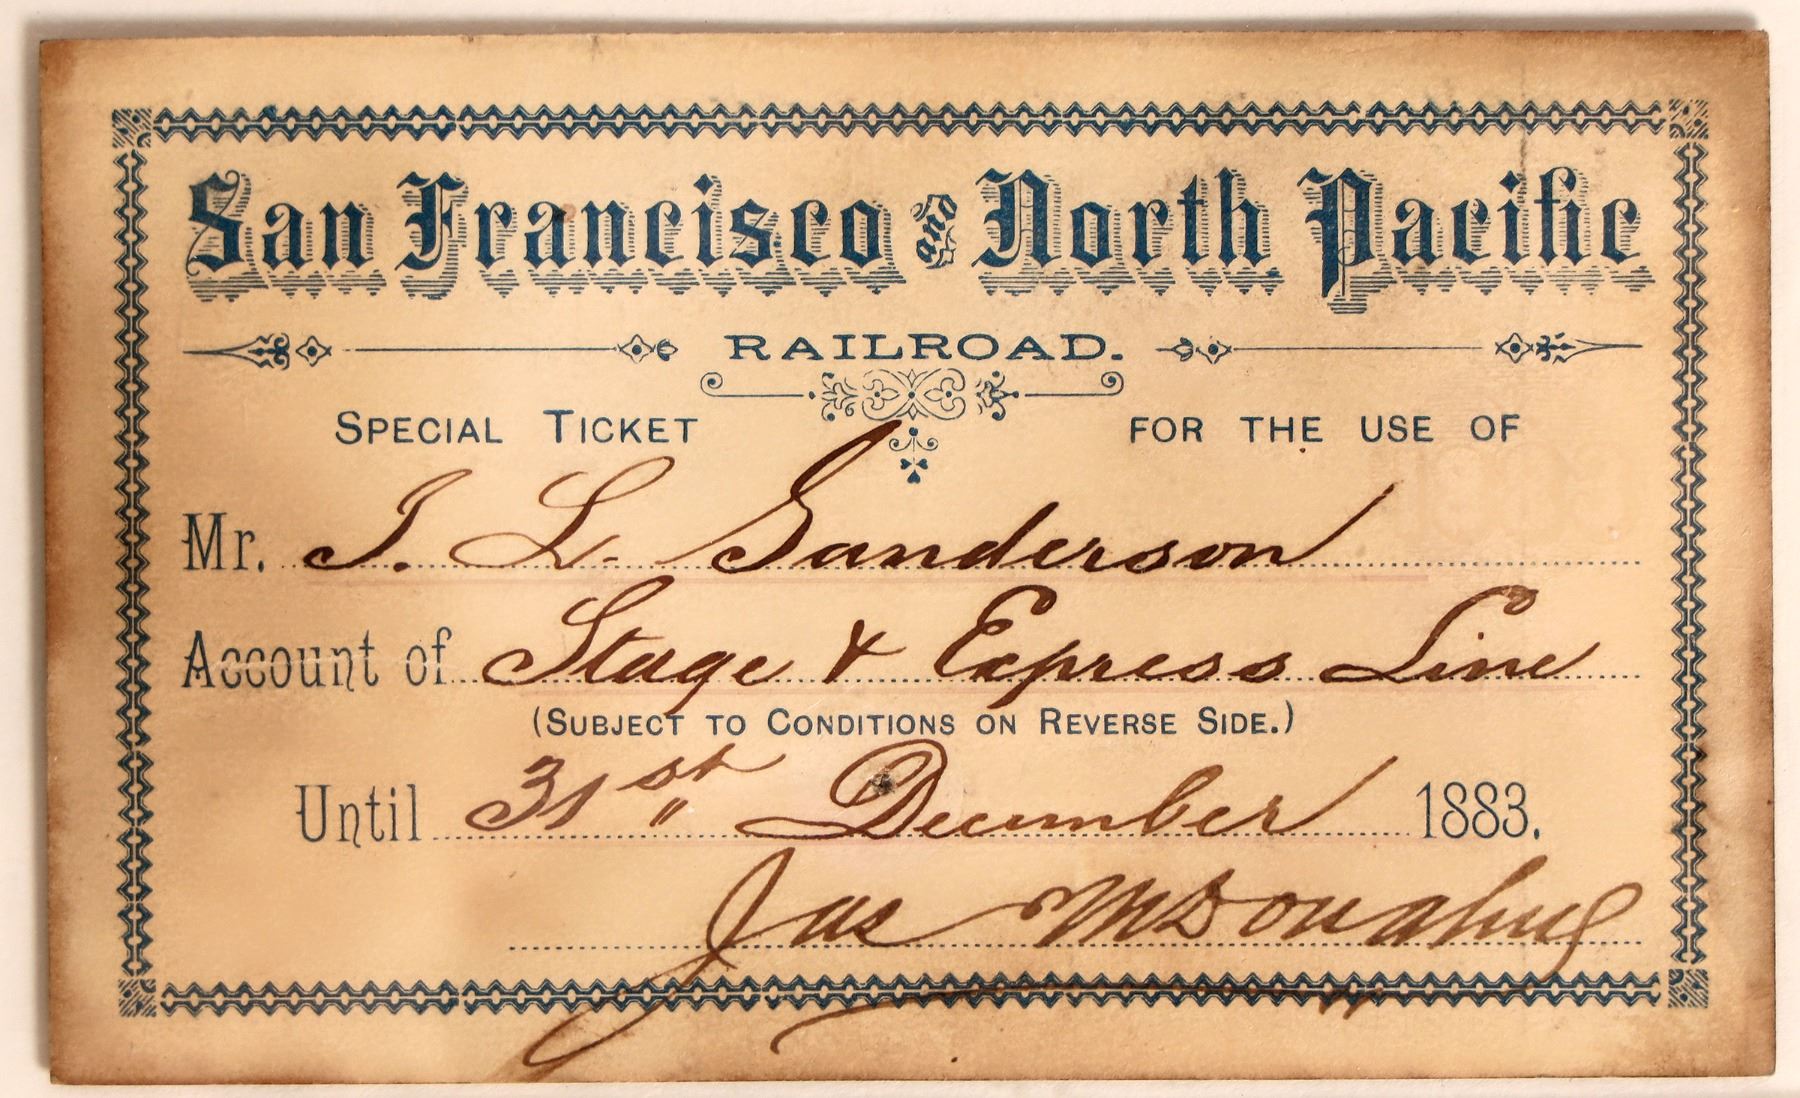 San Francisco and North Pacific
RAILROAD.
SPECIAL TICKET FOR THE USE OF
Mr. J. L. Sanderson
Account of Stage & Express Line
(SUBJECT TO CONDITIONS ON REVERSE SIDE.)
Until 31st December 1883.
Jas McDonahue